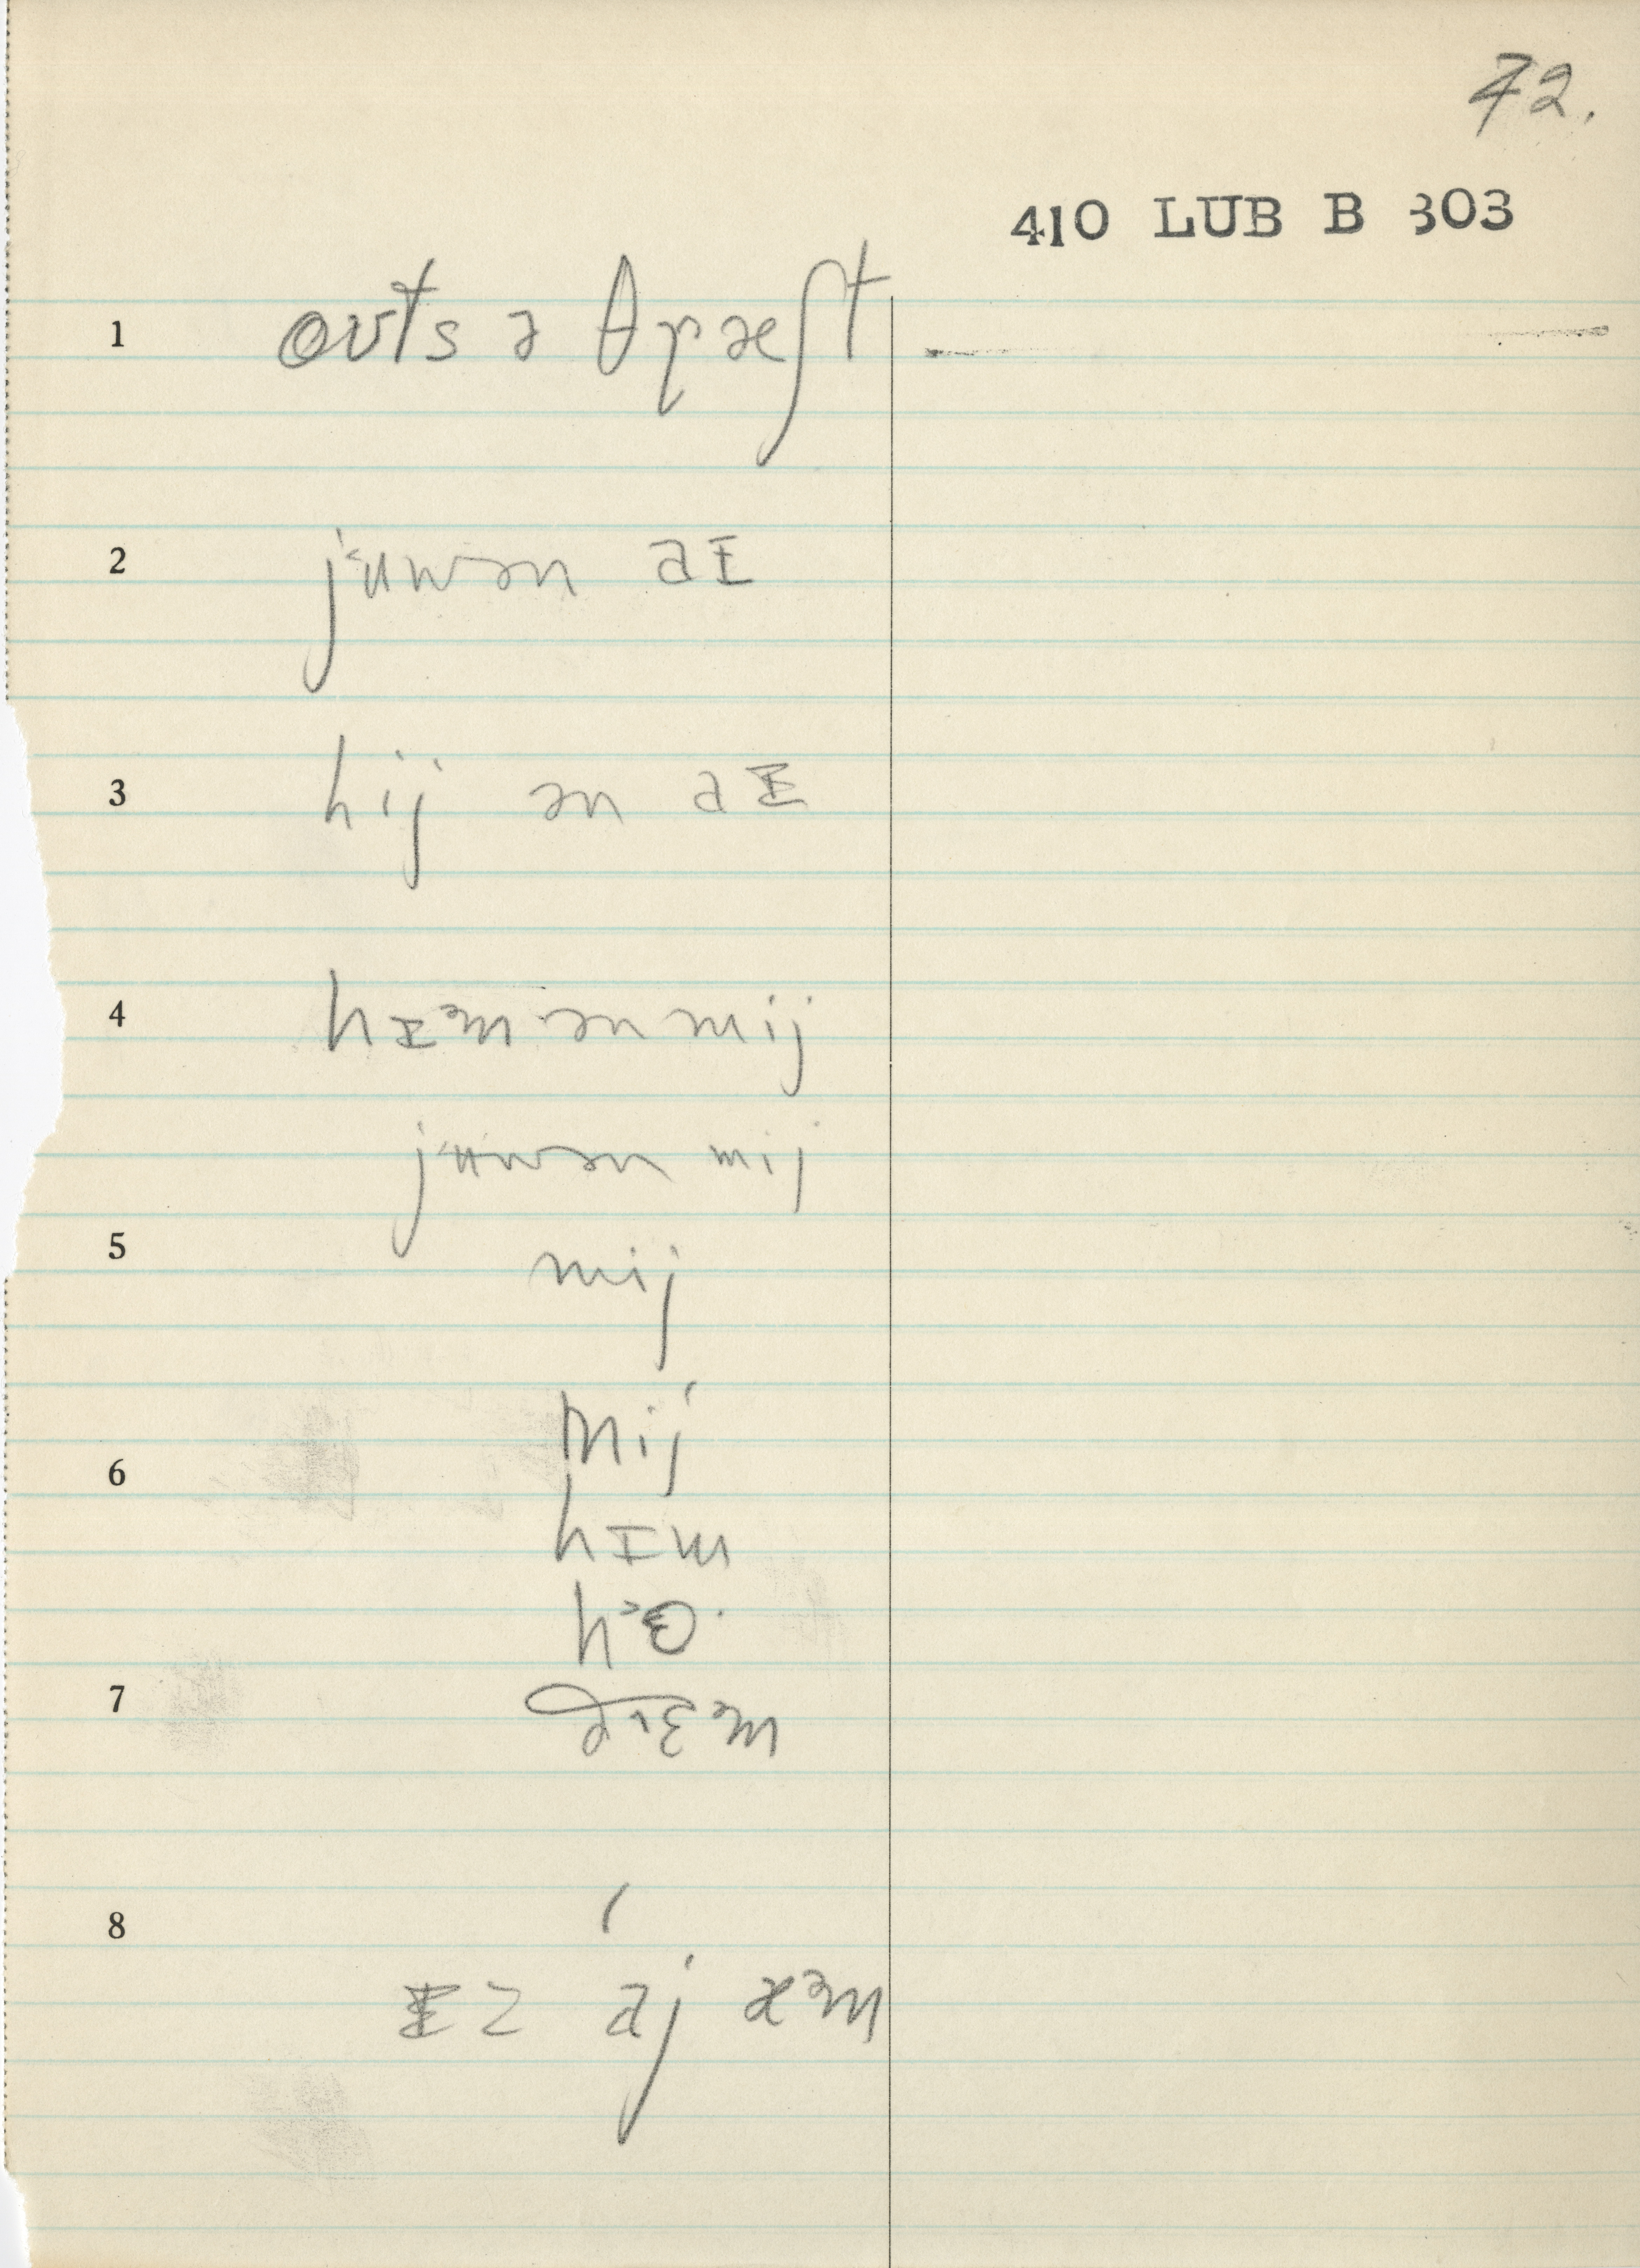 72.
410 LUB B 303
1 ovts ə θræʃt
2 juwən aɪ
3 hij ən aɪ
4 hɪəm ən mij
juwən mij
5 mij
6 mij
hɪm
7
8
ɪz aj æəm